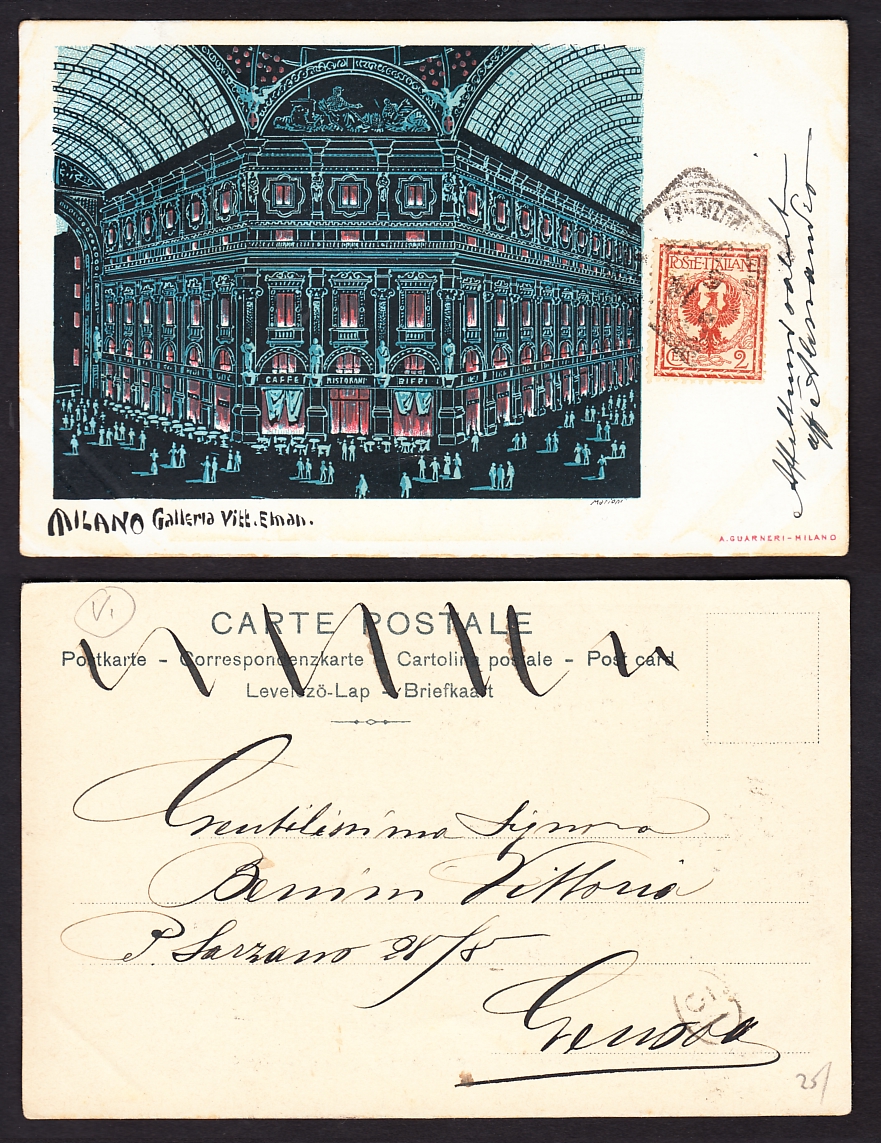 CAFFÈ RISTORANT BIFFI
MILANO Galleria Vitt. Eman.
Mariani
POSTE·ITALIANE
CENT. 2
Affettuosi saluti
aff Alessandro
A. GUARNERI - MILANO
V.
CARTE POSTALE
Postkarte - Correspondenzkarte - Cartolina postale - Post card
Levelező-Lap - Briefkaart
Gentilissima Signora
Benini Vittoria
P. Sarzano 28/8
Genova
25/